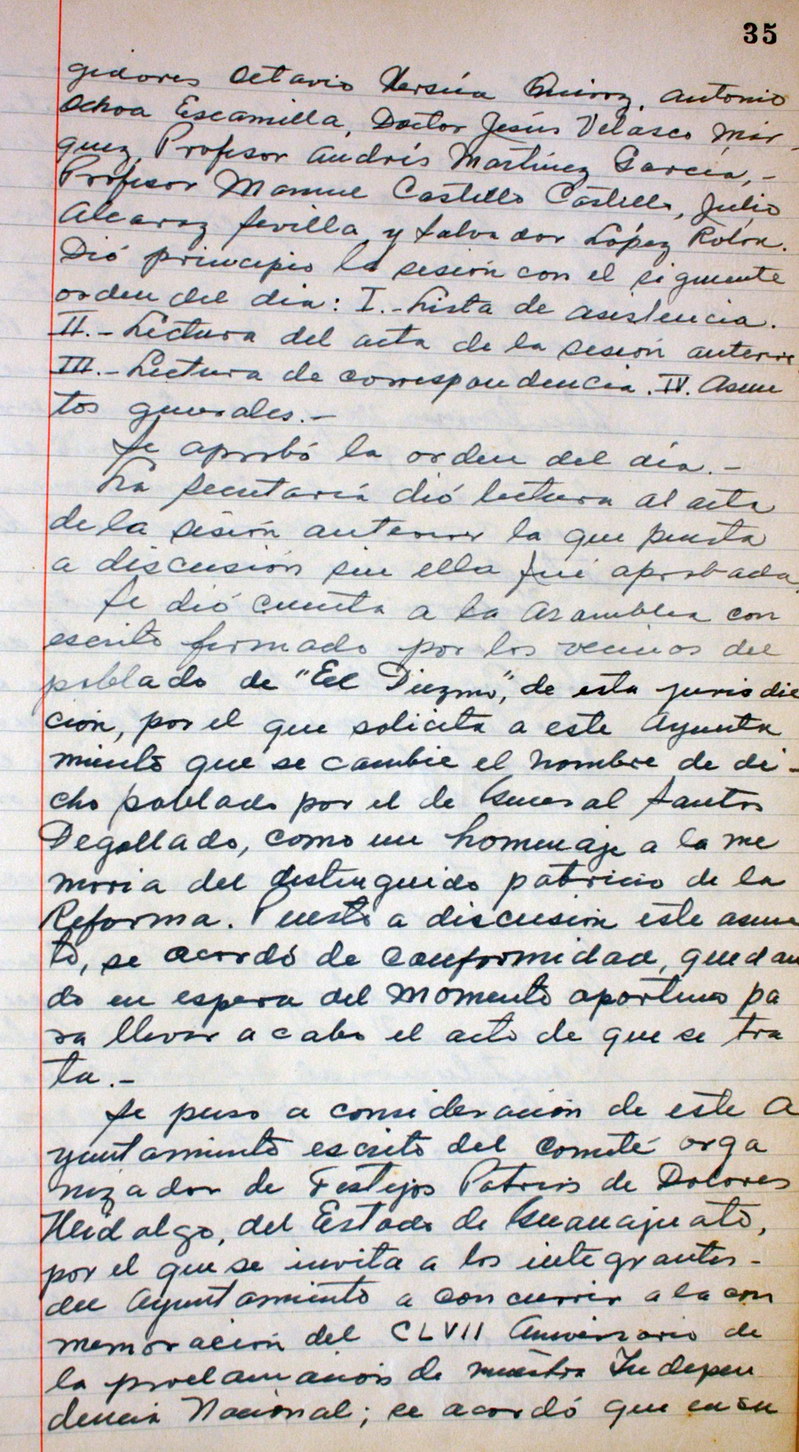 35
gidores Octavio Versúa Quiroz, Antonio
Ochoa Escamilla, Doctor Jesús Velasco Már-
quez, Profesor Andrés Martínez García,-
Profesor Manuel Castillo Castillo, Julio
Alcaraz Sevilla y Salvador López Rolón.
Dió principio la sesión con el siguiente
orden del día: I.-Lista de asistencia.
II.-Lectura del acta de la sesión anterior
III.-Lectura de correspondencia. IV. Asun
tos generales.-
Se aprobó la orden del día.-
La Secretaría dió lectura al acta
de la sesión anterior la que puesta
a discusión sin ella fué aprobada.
Se dió cuenta a la Asamblea con
escrito firmado por los vecinos del
poblado de "El Diezmo", de esta jurisdic
ción, por el que solicita a este Ayunta
miento que se cambie el nombre de di-
cho poblado por el de General Santos
Degollado, como un homenaje a la me
moria del distinguido patricio de la
Reforma. Puesto a discusión este asun
to, se acordó de conformidad, quedan
do en espera del momento oportuno pa
ra llevar a cabo el acto de que se tra
ta.-
Se puso a consideración de este A
yuntamiento escrito del comité orga
nizador de Festejos Patrios de Dolores
Hidalgo, del Estado de Guanajuato,
por el que se invita a los integrantes-
del Ayuntamiento a concurrir a la con
memoración del CLVII Aniversario de
la proclamación de nuestra Indepen
dencia Nacional; se acordó que en su